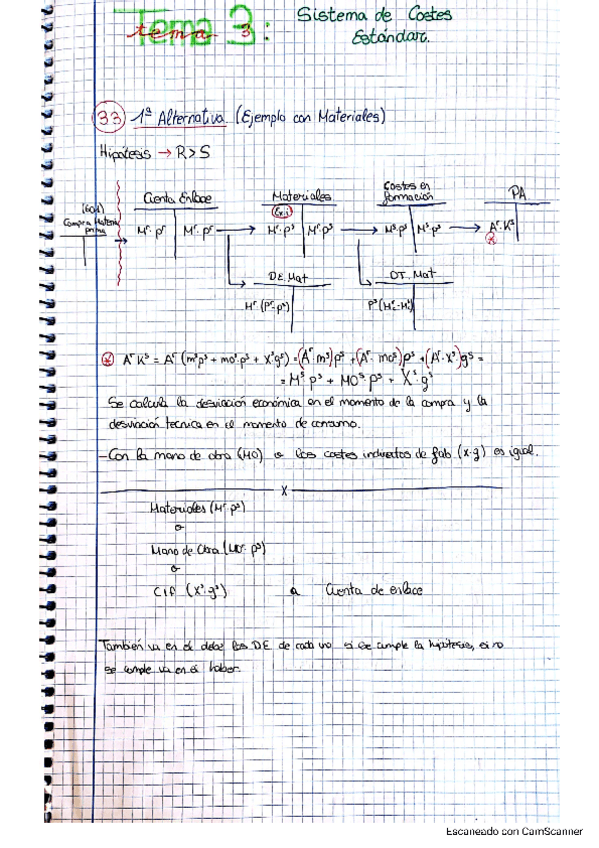 Tema 3:
Sistema de Costes
Estándar.
33 1ª Alternativa (Ejemplo con Materiales)
Hipótesis → R > S
(601)
Compra Materia
prima
Cuenta Enlace
Materiales
Costes en
formación
PA
(Ex.i)
Mʳ·pʳ Mʳ·pʳ → Mʳ·pˢ Mʳ·pˢ → Mˢ·pˢ Mˢ·pˢ → Aʳ·Kˢ
DE.Mat
DT.Mat
Mʳ(pʳ-pˢ)
* AʳKˢ = Aʳ (mˢpˢ + moˢ·pˢ + xˢgˢ) = (Aʳ·mˢ)pˢ + (Aʳ·moˢ)pˢ + (Aʳ·xˢ)gˢ =
= Mˢ·pˢ + MOˢ·pˢ + Xˢ·gˢ
Se calcula la desviación económica en el momento de la compra y la
desviación técnica en el momento de consumo.
- Con la mano de obra (MO) o los costes indirectos de fab. (x·g) es igual.
X
Materiales (Mʳ·pˢ)
o
Mano de Obra (MOʳ·pˢ)
o
CIF (Xˢ·gˢ) a Cuenta de enlace
También va en el debe las DE de cada uno si se cumple la hipótesis, si no
se cumple va en el haber.
Escaneado con CamScanner